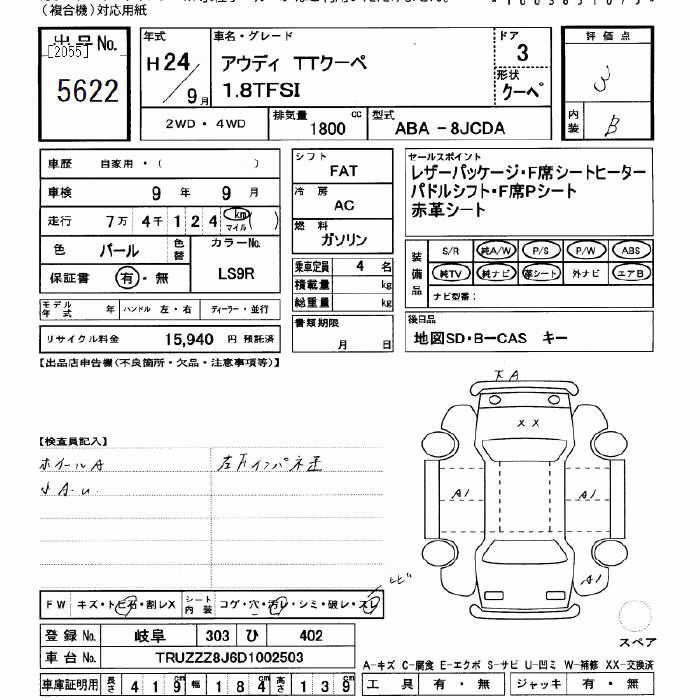 (複合機)対応用紙
出品No.
[2055]
5622
年式
H24/9月
車名・グレード
アウディ TTクーペ
1.8TFSI
ドア
3
形状
クーペ
2WD・4WD
排気量
1800 cc
型式
ABA－8JCDA
評価点
3
内装
B
車歴 自家用・( )
車検 9年 9月
走行 7万4千124 km マイル ( )
色 パール 色替
カラーNo.
LS9R
保証書 有・無
モデル年式 年 ハンドル 左・右 ディーラー・並行
リサイクル料金 15,940 円 預託済
シフト
FAT
冷房
AC
燃料
ガソリン
乗車定員 4 名
積載量 kg
総重量 kg
書類期限
月 日
セールスポイント
レザーパッケージ・F席シートヒーター
パドルシフト・F席Pシート
赤革シート
装備品
S/R 純A/W P/S P/W ABS
純TV 純ナビ 革シート 外ナビ エアB
ナビ型番：
後日品
地図SD・B－CAS キー
【出品店申告欄(不良箇所・欠品・注意事項等)】
【検査員記入】
ホイールA
小A-u
下A
XX
A1
A1
A1
FW キズ・トビ石・割レX
シート内装 コゲ・穴・汚レ・シミ・破レ・スレ
登録No. 岐阜 303 ひ 402
車台No. TRUZZZ8J6D1002503
車庫証明用 長さ 419 幅 184 高さ 139
スペア
A－キズ C－腐食 E－エクボ S－サビ U－凹ミ W－補修 XX－交換済
工具 有・無 ジャッキ 有・無